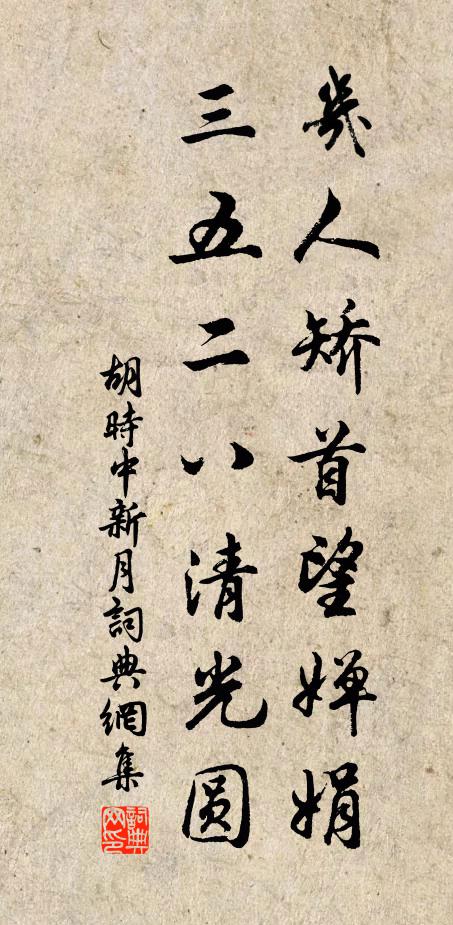 幾人矯首望嬋娟
三五二八清光圓
胡時中新月詞典網集
詞典網印